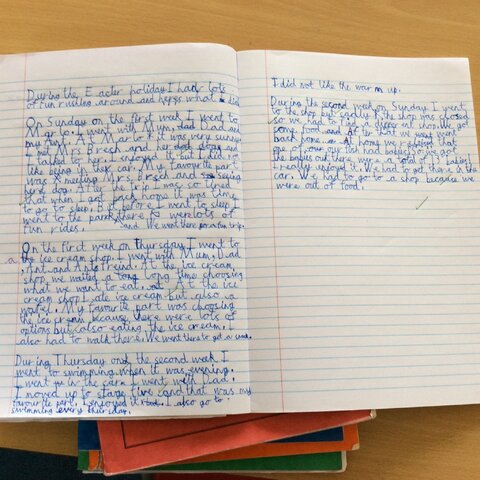 During the Easter holiday I had lots
of fun rushing around and what I did
On Sunday on the first week I went to
I went with Mum, Dad and
my Aunt. At it was very sunny
I met Mrs Bresh and her dog and
I talked to her. I enjoyed it but I did not
like being in the car. My favourite part
was meeting Mrs Bresh and seeing
her dog. After the trip I was so tired
that when I got back home it was time
to go to sleep. But before I went to sleep I
went to the park there were lots of
fun rides. and We went there for a fun trip.
On the first week on thursday I went to
a the ice cream shop. I went with Mum, Dad
, Ant and Ants freind. At the ice cream
shop we waited a long time choosing
what we want to eat. At the ice
cream shop I ate ice cream but also a
My favourite part was choosing
the ice cream because there were lots of
options but also eating the ice cream. I
also had to walk there. We went there to get ice cream.
During Thursday on the second week I
went to swimming when it was evening.
I went in the car I went with Dad.
I moved up to stage five and that was my
favourite part. I enjoyed it I also go to
swimming every thursday.
I did not like the warm up.
During the second week on Sunday I went
to the shop but sadly the shop was closed
so we had to find a shop. We got
some food and after that we went
back home. At home we realised that
one of our fish had babies
the babies out there were a total of 13 babies
I really enjoyed it. We had to get there in the
car. We had to go to a shop because we
were out of food.